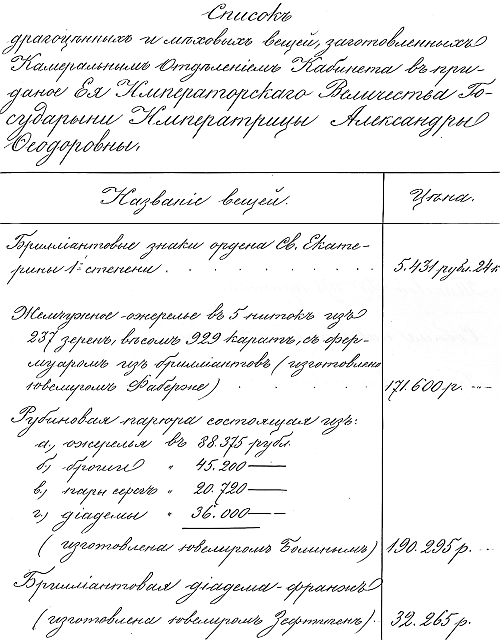 Списокъ
драгоцѣнныхъ и мѣховыхъ вещей, заготовленныхъ
Камеральнымъ Отдѣленіемъ Кабинета въ при-
даное Ея Императорскаго Величества Го-
сударыни Императрицы Александры
Ѳеодоровны.
Названіе вещей. Цѣна.
Брилліантовые знаки ордена Св. Екате-
рины 1й степени . . . . . . . . . 5.431 рубл. 24 к
Жемчужное ожерелье въ 5 нитокъ изъ
237 зеренъ, вѣсомъ 929 каратъ, съ фер-
муаромъ изъ брилліантовъ (изготовлено
ювелиромъ Фаберже) . . . . . . . 171.600 р. --
Рубиновая парюра состоящая изъ:
а, ожерелья въ 88.375 рубл.
б) броши " 45.200 —
в) пары серегъ " 20.720 —
г) діадемы " 36.000 —
(изготовлена ювелиромъ Болинымъ) 190.295 р. --
Брилліантовая діадема-франжъ
(изготовлена ювелиромъ Зефтигенъ). 32.265 р.